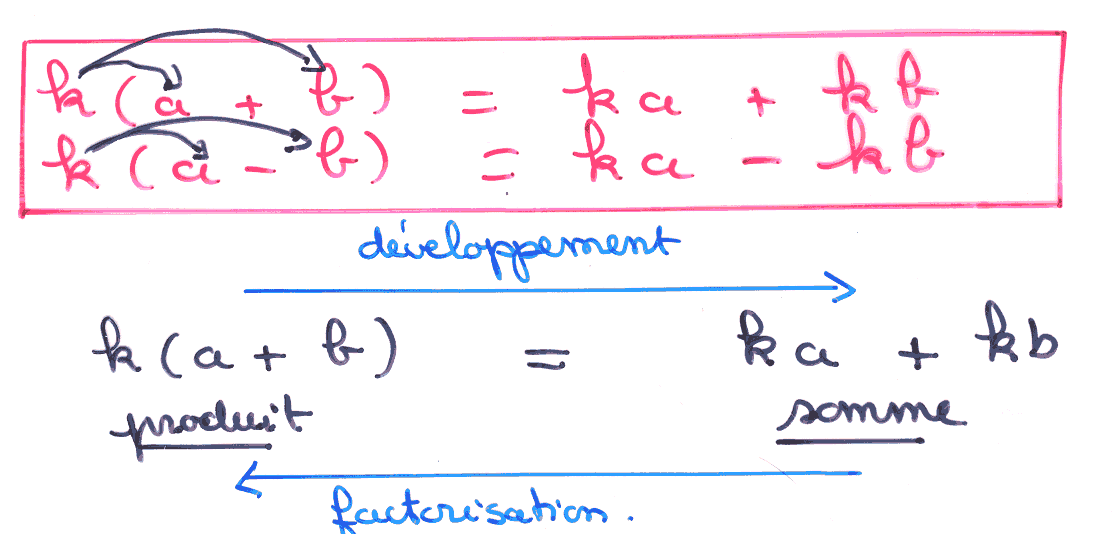 k (a + b) = ka + kb
k (a - b) = ka - kb
développement
k (a + b) = ka + kb
produit somme
factorisation.